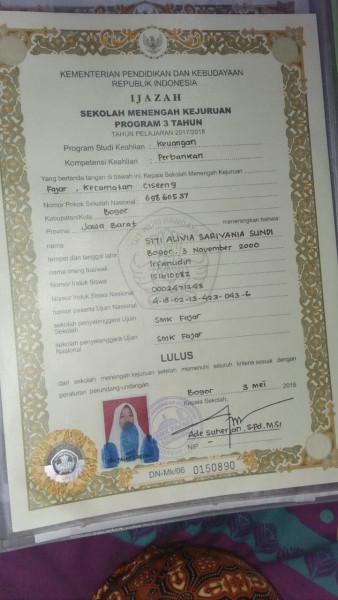 KEMENTERIAN PENDIDIKAN DAN KEBUDAYAAN
REPUBLIK INDONESIA
IJAZAH
SEKOLAH MENENGAH KEJURUAN
PROGRAM 3 TAHUN
TAHUN PELAJARAN 2017/2018
Program Studi Keahlian : Keuangan
Kompetensi Keahlian : Perbankan
Yang bertanda tangan di bawah ini, Kepala Sekolah Menengah Kejuruan
Fajar, Kecamatan Ciseeng
Nomor Pokok Sekolah Nasional : 69860537
Kabupaten/Kota Bogor
Provinsi Jawa Barat menerangkan bahwa:
nama SITI ALIVIA SARIVANIA SUNDI
tempat dan tanggal lahir Bogor, 3 November 2000
nama orang tua/wali Irfanudin
Nomor Induk Siswa 151610082
Nomor Induk Siswa Nasional 0002471248
nomor peserta Ujian Nasional 4-18-02-13-423-043-6
sekolah penyelenggara Ujian Sekolah SMK Fajar
sekolah penyelenggara Ujian Nasional SMK Fajar
LULUS
dari sekolah menengah kejuruan setelah memenuhi seluruh kriteria sesuai dengan
peraturan perundang-undangan.
Bogor 3 Mei 2018
Kepala Sekolah,
Ade Suherlan, S.Pd, M.Si
NIP. -
DN-Mk/06 0150890